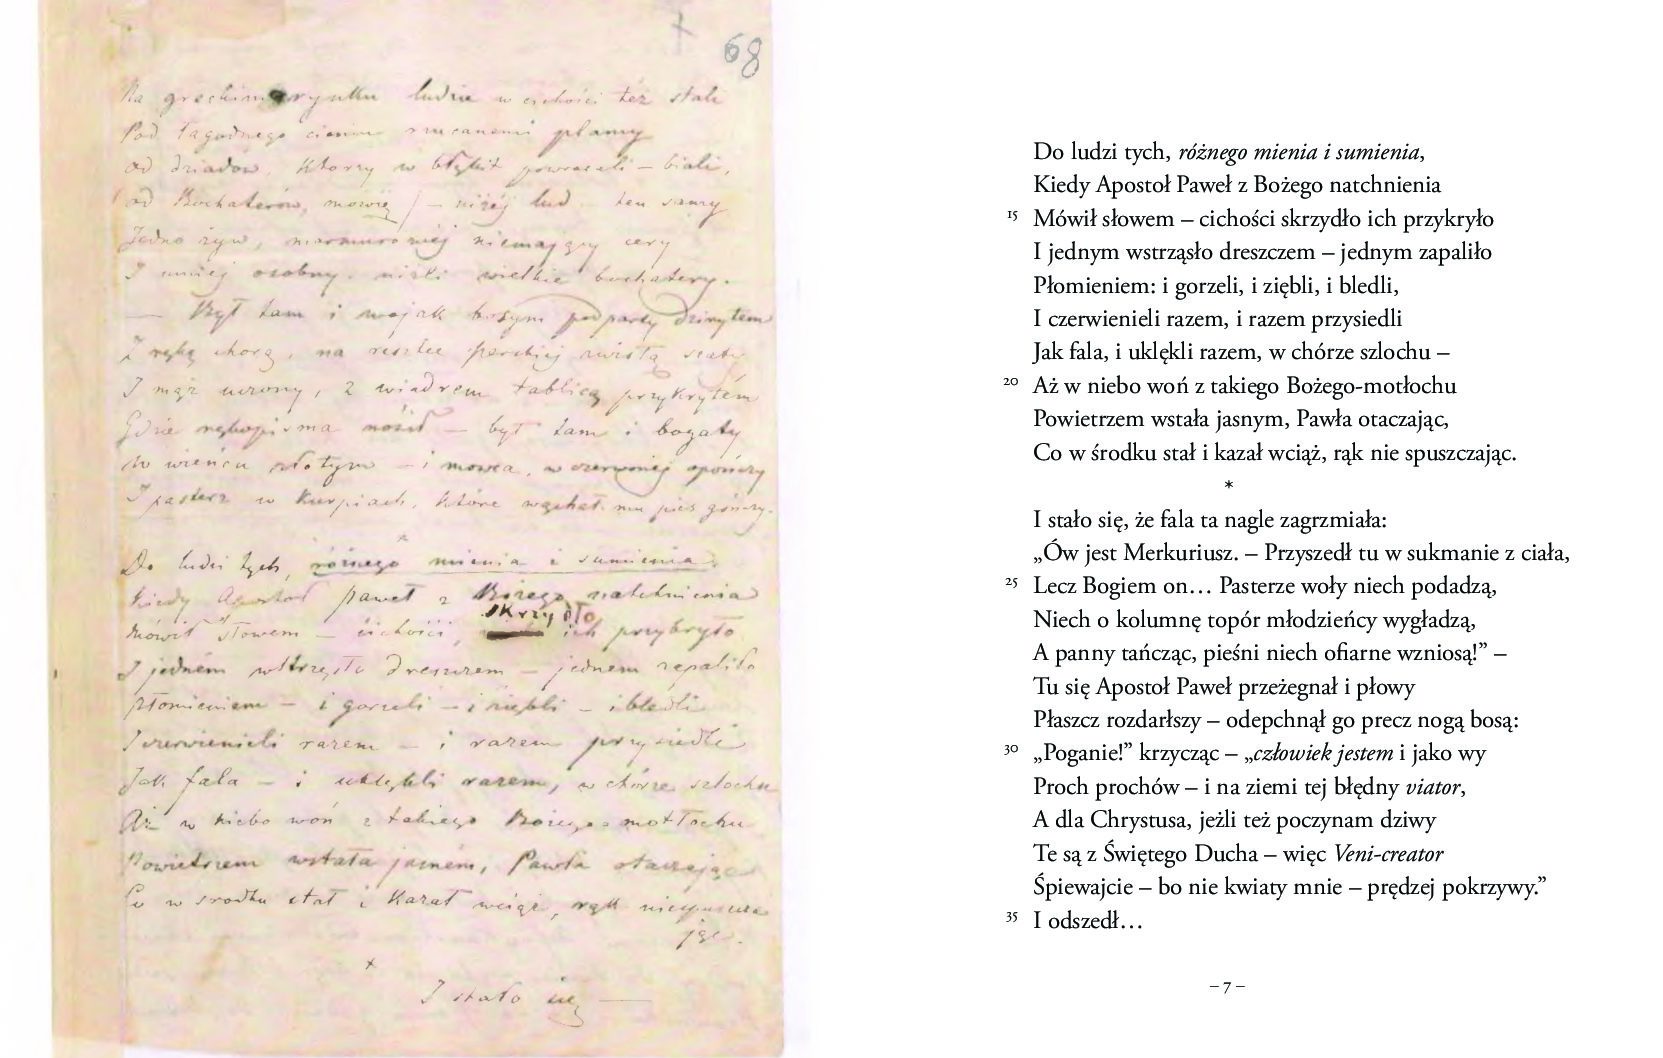 68
Na greckim rynku ludzie w cichości też stali
Pod łagodnego cieniu rzucanemi plamy
od dziadów, którzy w błękit powracali – biali,
od Bochaterów, mówię – niżéj lud – ten szary
Jedno żyw, marmurowéj niemający cery
I mniéj osobny, niźli wielkie bochatery.
— Był tam i wojak bosym podparty dzirytem
Z ręką chorą, na resztce perskiéj szatę
I mąż uczony, z wiadrem tablicą przykrytém
Gdzie rękopisma nosił – był tam i bogaty
W wieńcu złotym – i mówca, w czerwonéj opończy
I pasterz w kurpiach, które wąchał mu pies gończy.
Do ludzi tych, różnego mienia i sumienia,
Kiedy Apostoł Paweł z Bożego natchnienia
skrzydło
Mówił słowem – cichości, ich przykryło
I jedném wstrzęsło dreszczem – jednem zapaliło
Płomieniem – i gorzeli – i ziębli – i bledli
I czerwienieli razem – i razem przysiedli
Jak fala – i uklękli razem, w chórze szlochu
Aż w niebo woń z takiego Bożego-motłochu
Powietrzem wstała jasném, Pawła otaczając
Co w środku stał i kazał wciąż, rąk niespuszcza
jąc.
×
I stało się —
Do ludzi tych, różnego mienia i sumienia,
Kiedy Apostoł Paweł z Bożego natchnienia
15 Mówił słowem – cichości skrzydło ich przykryło
I jednym wstrząsło dreszczem – jednym zapaliło
Płomieniem: i gorzeli, i ziębli, i bledli,
I czerwienieli razem, i razem przysiedli
Jak fala, i uklękli razem, w chórze szlochu –
20 Aż w niebo woń z takiego Bożego-motłochu
Powietrzem wstała jasnym, Pawła otaczając,
Co w środku stał i kazał wciąż, rąk nie spuszczając.
*
I stało się, że fala ta nagle zagrzmiała:
„Ów jest Merkuriusz. – Przyszedł tu w sukmanie z ciała,
25 Lecz Bogiem on… Pasterze woły niech podadzą,
Niech o kolumnę topór młodzieńcy wygładzą,
A panny tańcząc, pieśni niech ofiarne wzniosą!” –
Tu się Apostoł Paweł przeżegnał i płowy
Płaszcz rozdarłszy – odepchnął go precz nogą bosą:
30 „Poganie!” krzycząc – „człowiek jestem i jako wy
Proch prochów – i na ziemi tej błędny viator,
A dla Chrystusa, jeżli też poczynam dziwy
Te są z Świętego Ducha – więc Veni-creator
Śpiewajcie – bo nie kwiaty mnie – prędzej pokrzywy.”
35 I odszedł…
– 7 –